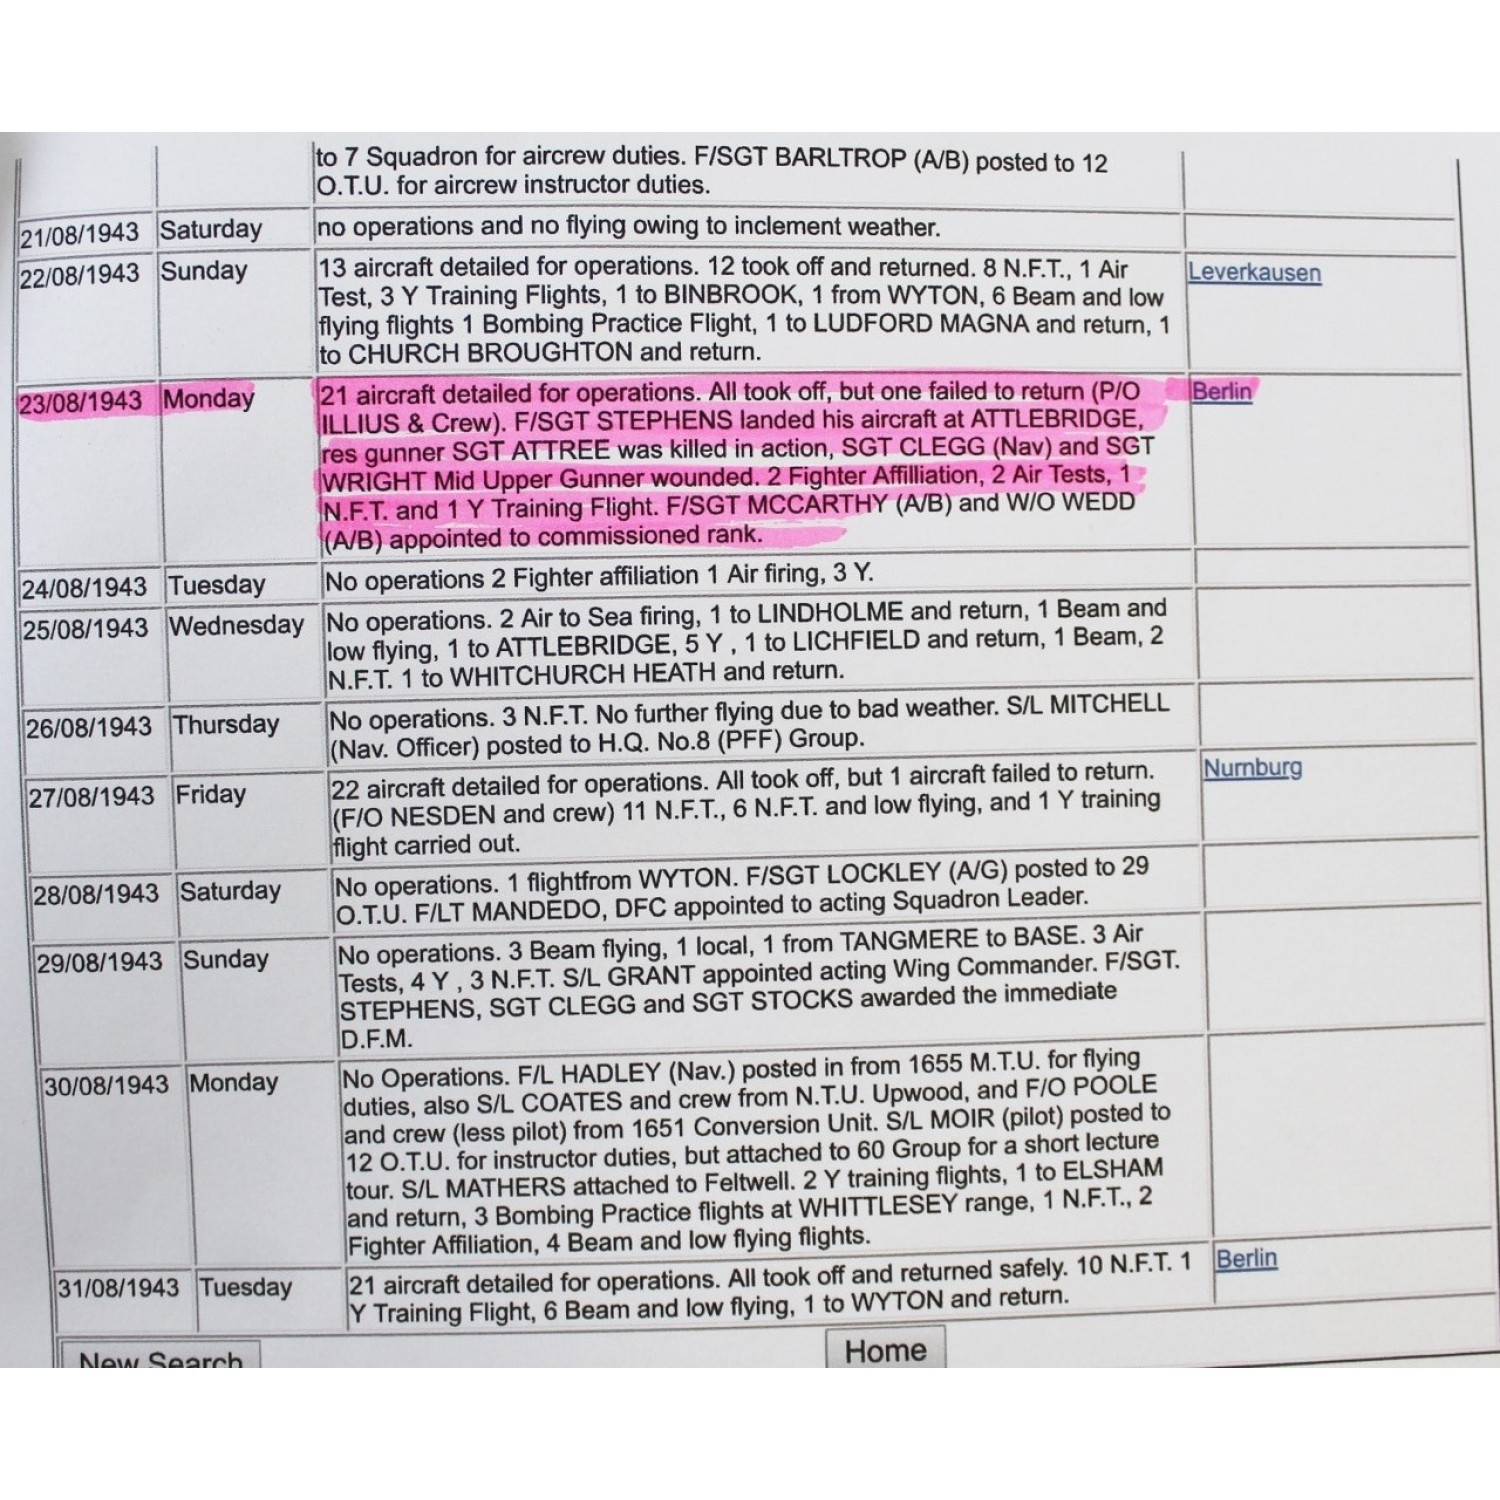 to 7 Squadron for aircrew duties. F/SGT BARLTROP (A/B) posted to 12
O.T.U. for aircrew instructor duties.
21/08/1943 Saturday no operations and no flying owing to inclement weather.
22/08/1943 Sunday 13 aircraft detailed for operations. 12 took off and returned. 8 N.F.T., 1 Air Leverkausen
Test, 3 Y Training Flights, 1 to BINBROOK, 1 from WYTON, 6 Beam and low
flying flights 1 Bombing Practice Flight, 1 to LUDFORD MAGNA and return, 1
to CHURCH BROUGHTON and return.
23/08/1943 Monday 21 aircraft detailed for operations. All took off, but one failed to return (P/O Berlin
ILLIUS & Crew). F/SGT STEPHENS landed his aircraft at ATTLEBRIDGE,
res gunner SGT ATTREE was killed in action, SGT CLEGG (Nav) and SGT
WRIGHT Mid Upper Gunner wounded. 2 Fighter Affilliation, 2 Air Tests, 1
N.F.T. and 1 Y Training Flight. F/SGT MCCARTHY (A/B) and W/O WEDD
(A/B) appointed to commissioned rank.
24/08/1943 Tuesday No operations 2 Fighter affiliation 1 Air firing, 3 Y.
25/08/1943 Wednesday No operations. 2 Air to Sea firing, 1 to LINDHOLME and return, 1 Beam and
low flying, 1 to ATTLEBRIDGE, 5 Y , 1 to LICHFIELD and return, 1 Beam, 2
N.F.T. 1 to WHITCHURCH HEATH and return.
26/08/1943 Thursday No operations. 3 N.F.T. No further flying due to bad weather. S/L MITCHELL
(Nav. Officer) posted to H.Q. No.8 (PFF) Group.
27/08/1943 Friday 22 aircraft detailed for operations. All took off, but 1 aircraft failed to return. Nurnburg
(F/O NESDEN and crew) 11 N.F.T., 6 N.F.T. and low flying, and 1 Y training
flight carried out.
28/08/1943 Saturday No operations. 1 flightfrom WYTON. F/SGT LOCKLEY (A/G) posted to 29
O.T.U. F/LT MANDEDO, DFC appointed to acting Squadron Leader.
29/08/1943 Sunday No operations. 3 Beam flying, 1 local, 1 from TANGMERE to BASE. 3 Air
Tests, 4 Y , 3 N.F.T. S/L GRANT appointed acting Wing Commander. F/SGT.
STEPHENS, SGT CLEGG and SGT STOCKS awarded the immediate
D.F.M.
30/08/1943 Monday No Operations. F/L HADLEY (Nav.) posted in from 1655 M.T.U. for flying
duties, also S/L COATES and crew from N.T.U. Upwood, and F/O POOLE
and crew (less pilot) from 1651 Conversion Unit. S/L MOIR (pilot) posted to
12 O.T.U. for instructor duties, but attached to 60 Group for a short lecture
tour. S/L MATHERS attached to Feltwell. 2 Y training flights, 1 to ELSHAM
and return, 3 Bombing Practice flights at WHITTLESEY range, 1 N.F.T., 2
Fighter Affiliation, 4 Beam and low flying flights.
31/08/1943 Tuesday 21 aircraft detailed for operations. All took off and returned safely. 10 N.F.T. 1 Berlin
Y Training Flight, 6 Beam and low flying, 1 to WYTON and return.
New Search Home